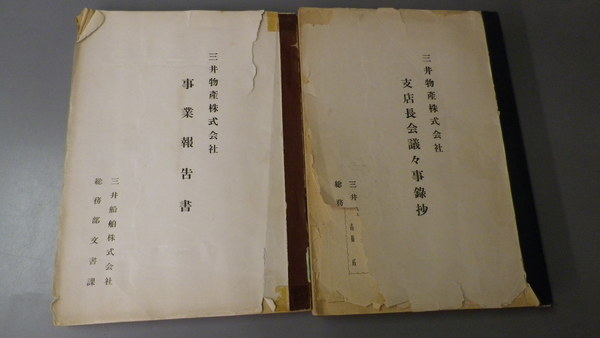 三井物產株式会社
事業報告書
三井船舶株式会社
総務部文書課
三井物產株式会社
支店長会議々事錄抄
三井
総務